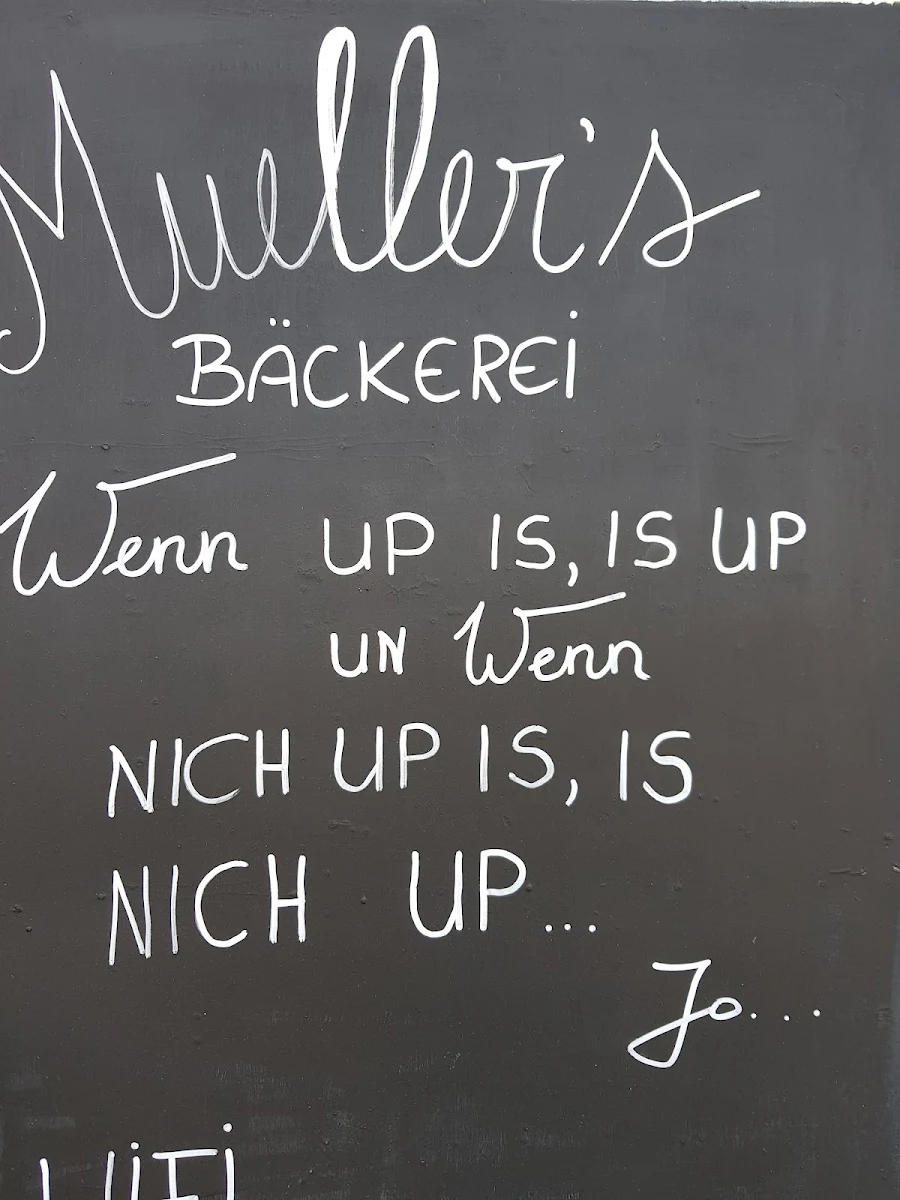 Mueller's
BÄCKEREI
Wenn UP IS, IS UP
UN Wenn
NICH UP IS, IS
NICH UP...
Jo...
WiFi